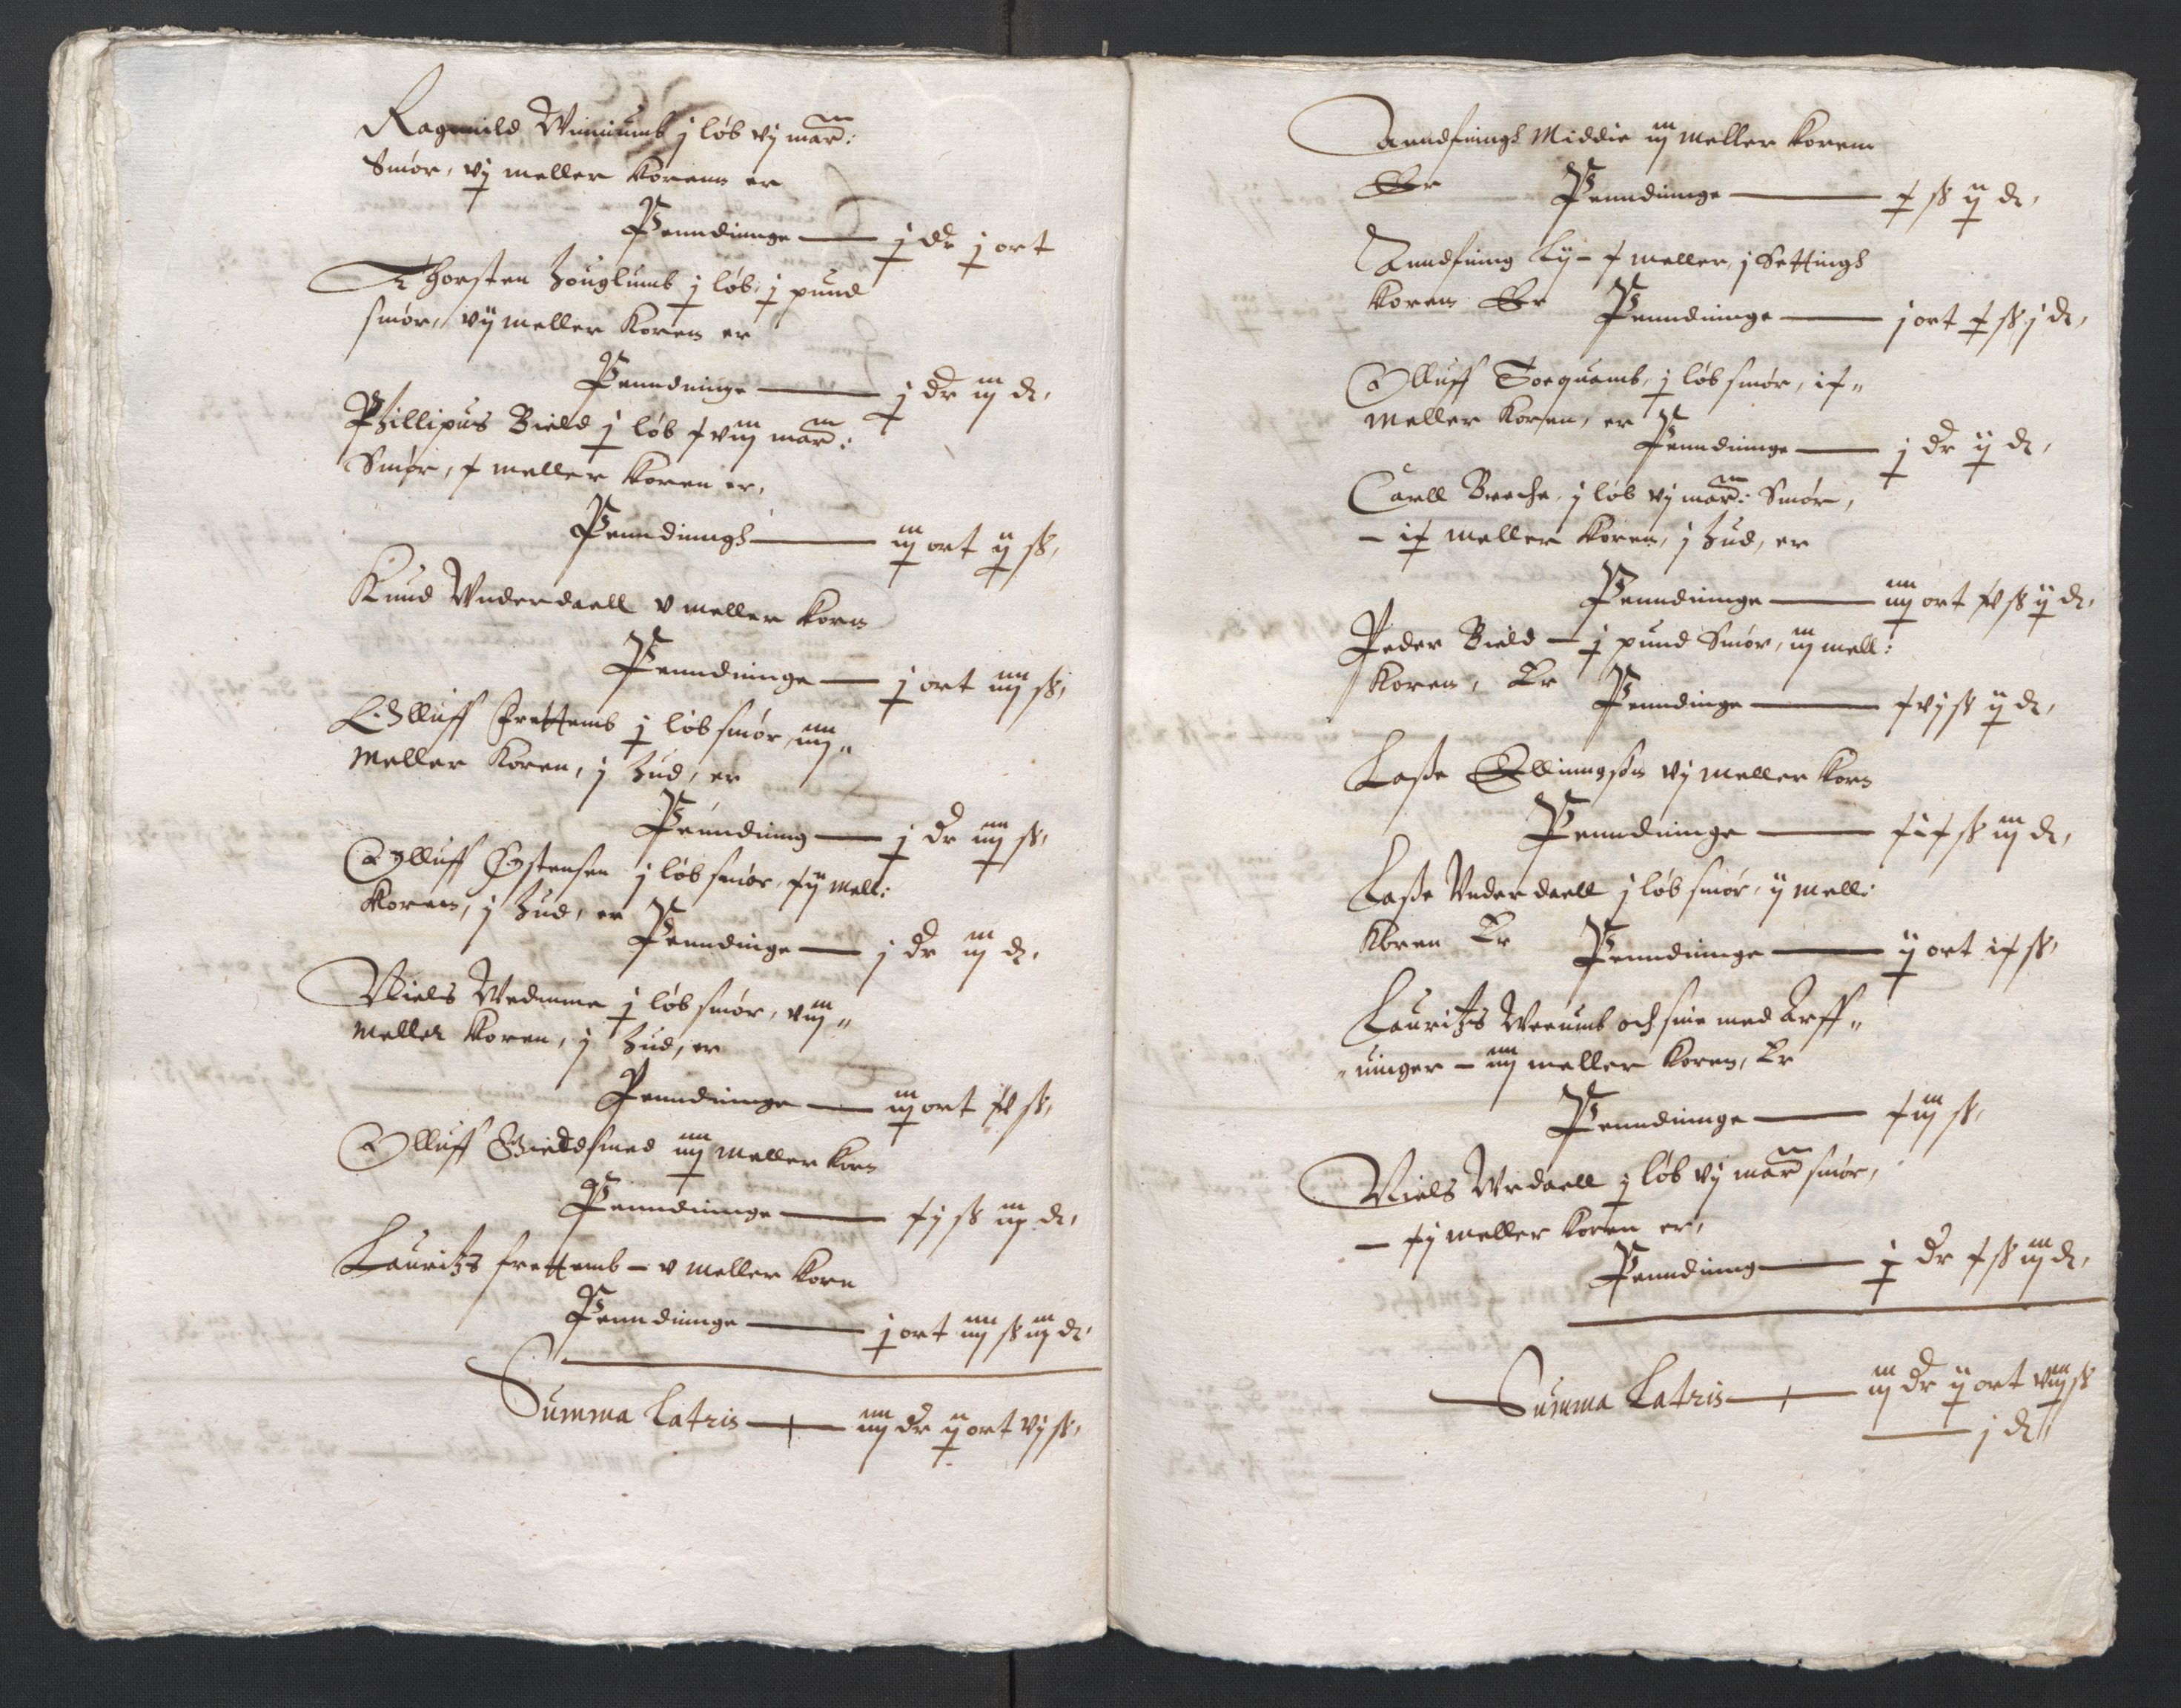 Ragnnild Winniumb j løb vj mar:
Smør, vj meller Korenn er
Penndinnge — j dr j ort
Thorsten Houglumb j løb, j pund
smør, vij meller Koren er
Penndninge — j dr iij d,
Phillipus Bield j løb xviij mar:
Smør, x meller Koren er,
Penndinngh — iij ort ij sk,
Knud Wnderdaell v meller Korn
Penndninge — j ort iiij sk,
Olluff Frettemb j løb smør, iiij„
Meller Koren, j Hud, er
Penndinng — j dr iiij sk,
Olluff Østensen j løb smør, xij mell:
Koren, j Hud, er
Penndinge — j dr iij d,
Niels Wedmme j løb smør, viij„
Meller Koren, j Hud, er
Penndninge — iij ort xv sk,
Olluff Gieldsmed iiij meller Korn
Penndninge — xj sk iij d,
Lauritzs frettemb – v meller Korn
Penndninge — j ort iiij sk iij d,
Summa Latris — iiij dr ij ort vj sk,
Anndfinngh Middie iij meller Korenn
Er Penndinnge — x sk ij d,
Anndfinng Lij – x meller, j Settingh
Koren Er Penndninge — j ort x sk j d,
Olluff Torquamb, j løb smør, ix„
Meller Koren, er
Penndninge — j dr ij d,
Carll Breche, j løb vj mar: Smør,
– ix meller Koren, j Hud, er
Penndninge — iiij ort xv sk ij d,
Peder Bield – j pund Smør, iij mell:
Koren, Er Penndinge — xvj sk ij d,
Laße Ellinngsøn vj meller Korn
Penndninge — xix sk iij d,
Laße Wnderdaell j løb smør, ij mell:
Koren Er Penndninge — ij ort ix sk,
Lauritzs Weeumb och sine med Arff„
„uinger – iiij meller Koren, Er
Penndninge — xiij sk,
Niels Wrdaell j løb vj mar smør,
– xj meller Koren er,
Penndinng — j dr x sk iij d,
Summa Latris — iij dr ij ort viij sk
— j d,